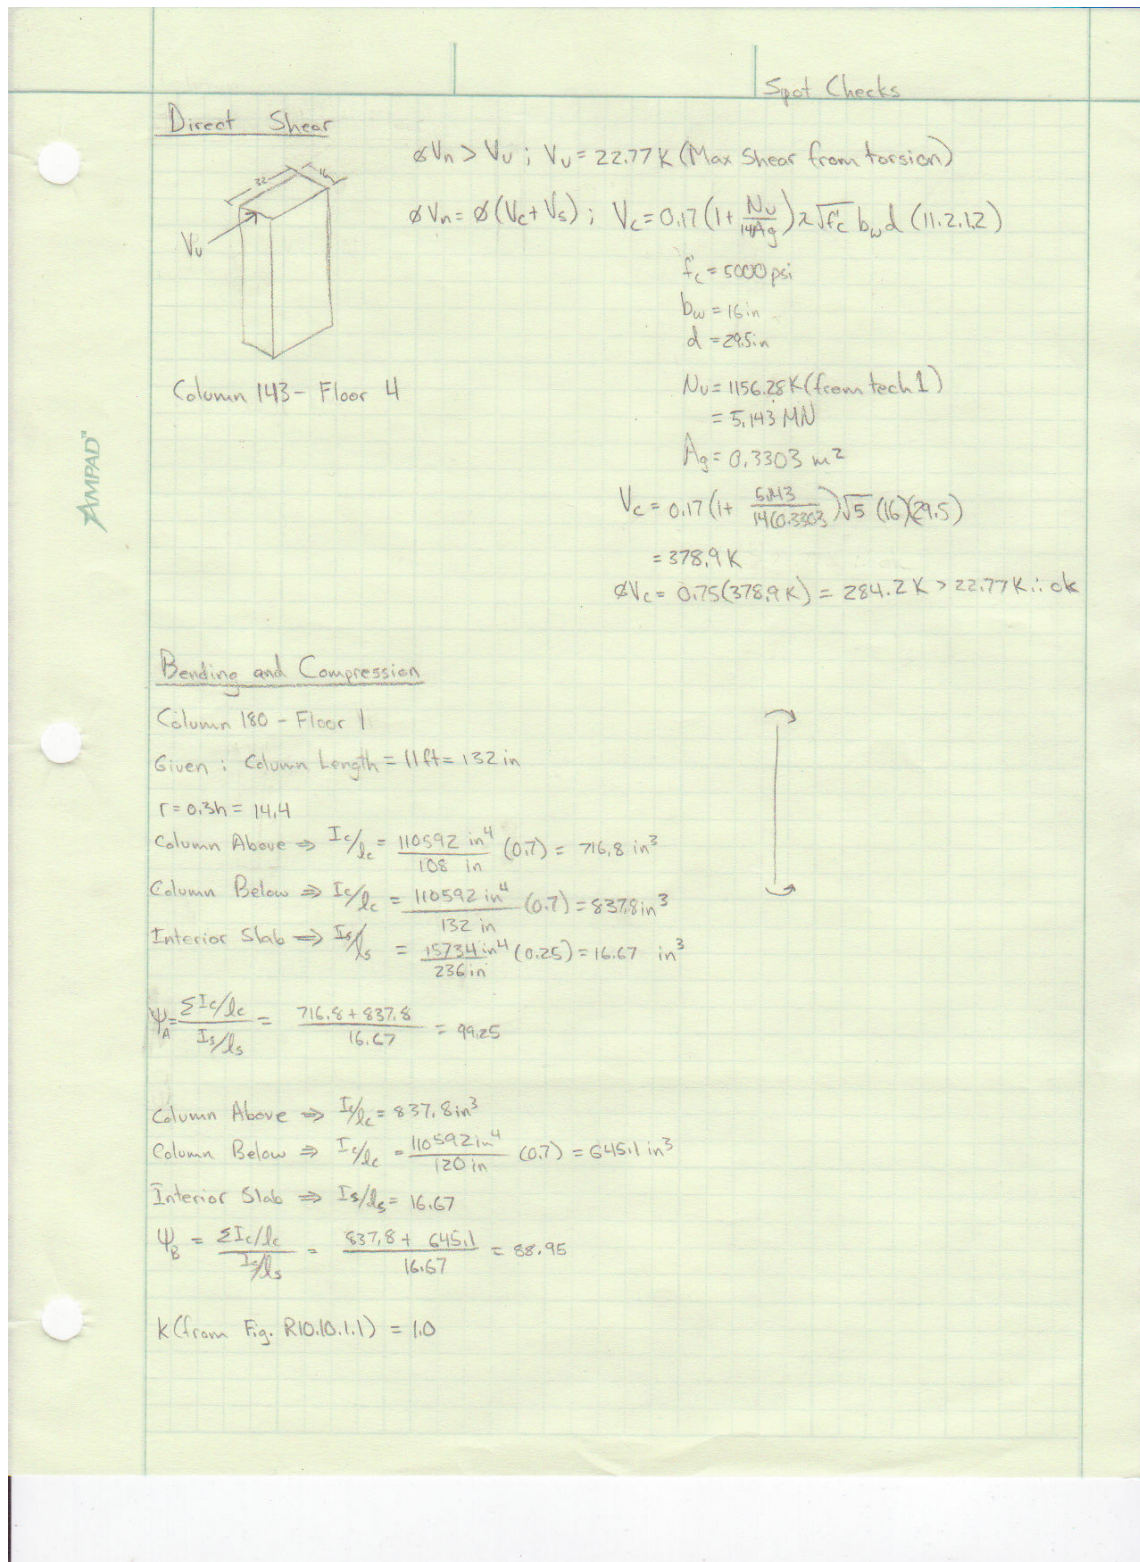 Spot Checks
Direct Shear
32 16
Vu
ϕVn > Vu ; Vu = 22.77 K (Max Shear from torsion)
ϕVn = ϕ(Vc + Vs) ; Vc = 0.17 (1 + Nu/14Ag) λ √f'c bw d (11.2.1.2)
f'c = 5000 psi
bw = 16 in
d = 29.5 in
Column 143 - Floor 4
Nu = 1156.28 K (from tech 1)
= 5.143 MN
Ag = 0.3303 m²
Vc = 0.17 (1 + 5.143/14(0.3303)) √5 (16)(29.5)
= 378.9 K
ϕVc = 0.75(378.9 K) = 284.2 K > 22.77 K ∴ ok
AMPAD™
Bending and Compression
Column 180 - Floor 1
Given : Column Length = 11 ft = 132 in
r = 0.3h = 14.4
Column Above ⇒ Ic/lc = 110592 in⁴/108 in (0.7) = 716.8 in³
Column Below ⇒ Ic/lc = 110592 in⁴/132 in (0.7) = 837.8 in³
Interior Slab ⇒ Is/ls = 15734 in⁴/236 in (0.25) = 16.67 in³
ΨA = ΣIc/lc / Is/ls = 716.8 + 837.8 / 16.67 = 99.25
Column Above ⇒ Ic/lc = 837.8 in³
Column Below ⇒ Ic/lc = 110592 in⁴/120 in (0.7) = 645.1 in³
Interior Slab ⇒ Is/ls = 16.67
ΨB = ΣIc/lc / Is/ls = 837.8 + 645.1 / 16.67 = 88.95
k (from Fig. R10.10.1.1) = 1.0